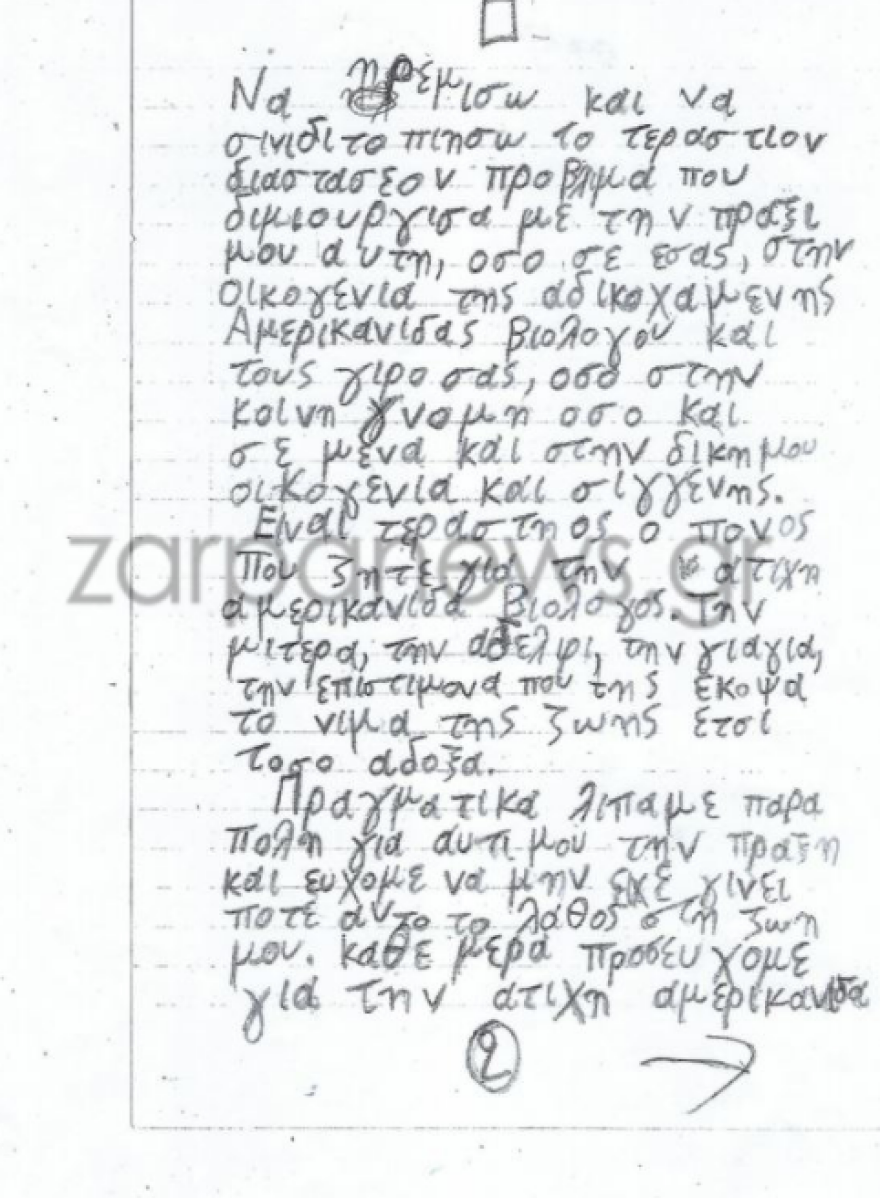 Να ηρεμισω και να
σινιδιτοπιησω το τεραστιον
διαστασεον προβλιμα που
διμιουργισα με την πραξι
μου αυτη, οσο σε εσας, στην
οικογενια της αδικοχαμενης
Αμερικανιδας βιολογου και
τους γιρο σας, οσο στην
κοινη γνομη οσο και
σε μενα και στην δικημου
οικογενια και σιγγενης.
Ειναι τεραστηος ο πονος
που ζητε για την ατιχη
αμερικανιδα βιολογος. Την
μιτερα, την αδελφι, την γιαγια,
την επιστιμονα που της εκοψα
το νιμα της ζωης ετσι
τοσο αδοξα.
Πραγματικα λιπαμε παρα
πολη για αυτιμου την πραξη
και ευχομε να μην ειχε γινει
ποτε αυτο το λαθος στη ζωη
μου. καθε μερα προσευχομε
για την ατιχη αμερικανιδα
2
zarpanews.gr